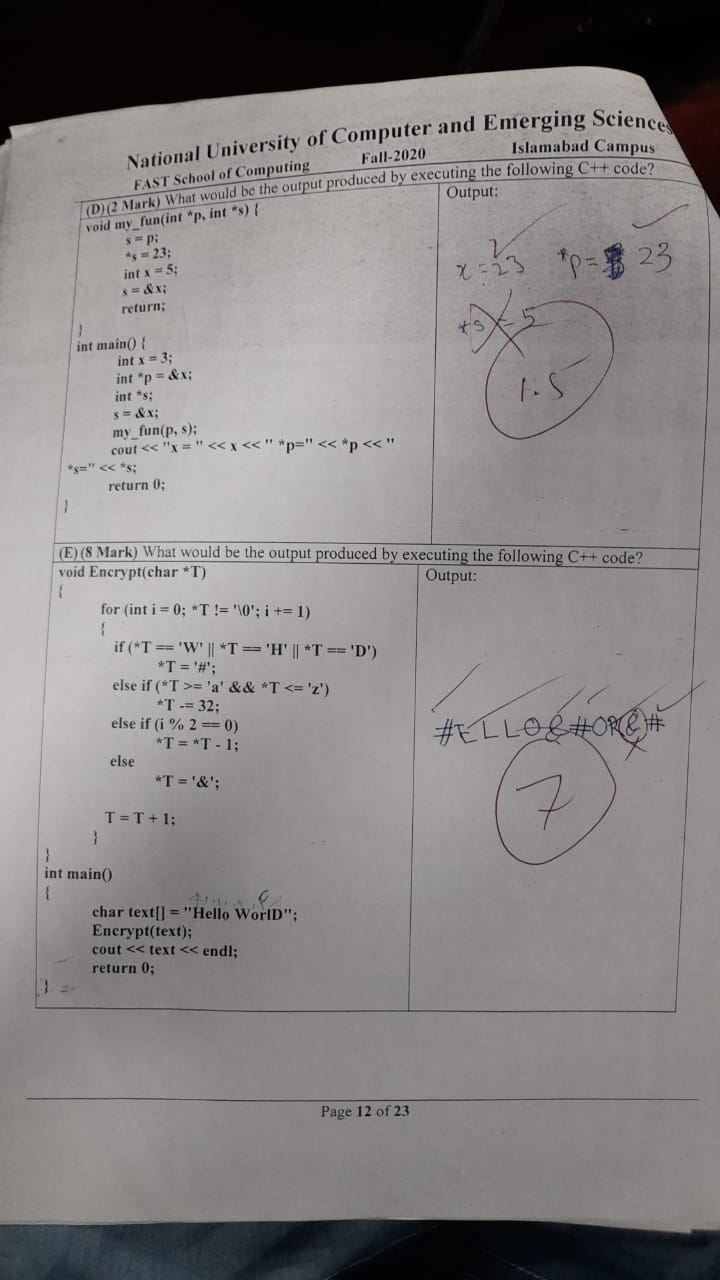 National University of Computer and Emerging Sciences
FAST School of Computing Fall-2020 Islamabad Campus
(D)(2 Mark) What would be the output produced by executing the following C++ code?
void my_fun(int *p, int *s) {
s = p;
*s = 23;
int x = 5;
s = &x;
return;
}
int main() {
int x = 3;
int *p = &x;
int *s;
s = &x;
my_fun(p, s);
cout << "x = " << x << " *p=" << *p << "
*s=" << *s;
return 0;
}
Output:
x = 23 *p = 23
*s = 5
1.5
(E)(8 Mark) What would be the output produced by executing the following C++ code?
void Encrypt(char *T)
{
for (int i = 0; *T != '\0'; i += 1)
{
if (*T == 'W' || *T == 'H' || *T == 'D')
*T = '#';
else if (*T >= 'a' && *T <= 'z')
*T -= 32;
else if (i % 2 == 0)
*T = *T - 1;
else
*T = '&';
T = T + 1;
}
}
int main()
{
char text[] = "Hello WorlD";
Encrypt(text);
cout << text << endl;
return 0;
}
Output:
#ELLO&#OR&#
7
Page 12 of 23